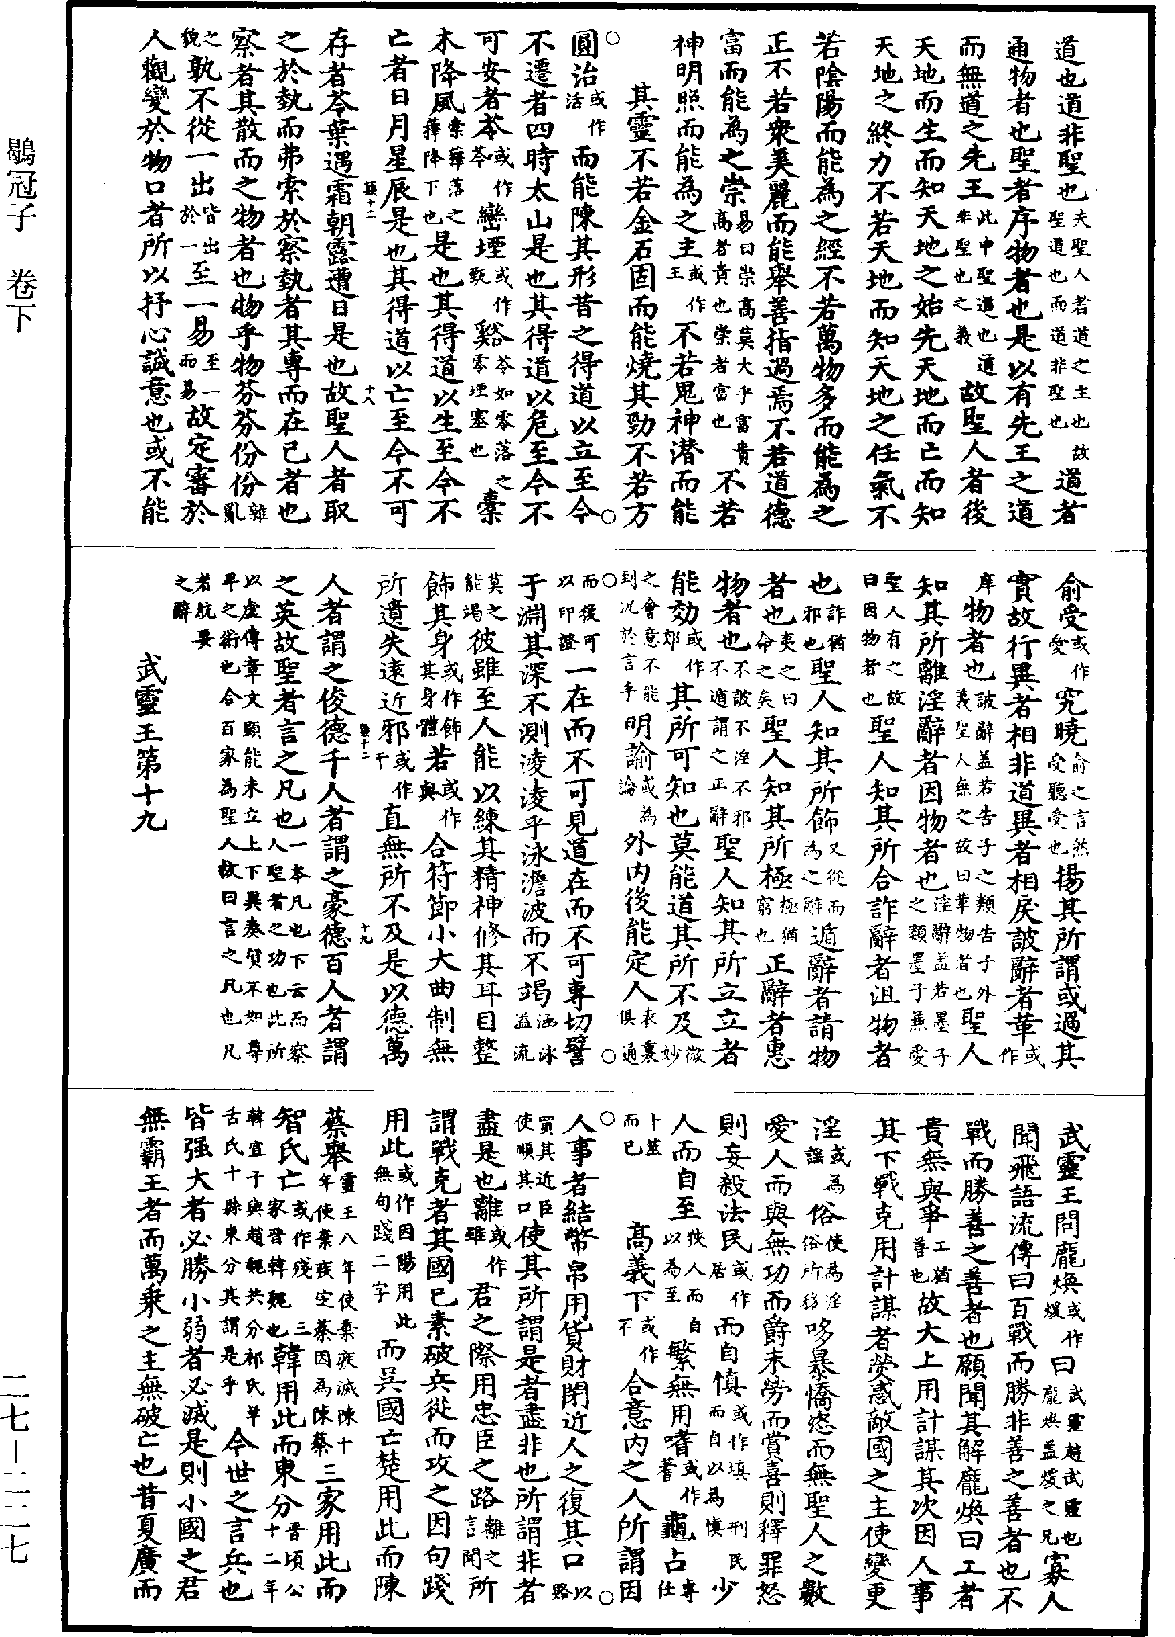 鶡冠子　卷下
二七－二二七
道也道非聖也夫聖人者道之主也故聖道也而道非聖也道者
通物者也聖者序物者也是以有先王之道
而無道之先王此中聖道也道非聖也之義故聖人者後
天地而生而知天地之始先天地而亡而知
天地之終力不若天地而知天地之任氣不
若陰陽而能為之經不若萬物多而能為之
正不若衆美麗而能舉善指過焉不若道德
富而能為之崇易曰崇高莫大乎富貴高者貴也崇者富也不若
神明照而能為之主或作王不若鬼神潛而能
其靈不若金石固而能燒其勁不若方
圓治或作活而能陳其形昔之得道以立至今
不遷者四時太山是也其得道以危至今不
可安者苓或作苓巒堙或作甄谿苓如零落之零堙塞也橐
木降風橐蘀落之蘀降下也是也其得道以生至今不
亡者日月星辰是也其得道以亡至今不可
存者苓葉遇霜朝露遭日是也故聖人者取
之於埶而弗索於察埶者其專而在己者也
察者其散而之物者也物乎物芬芬份份雜亂
之貌孰不從一出皆出於一至一易至一而易故定審於
人觀變於物口者所以抒心誠意也或不能
俞受或作愛究曉俞之言然受聽受也揚其所謂或過其
實故行異者相非道異者相戾詖辭者革或作
庠物者也詖辭蓋若告子之類告子外義聖人無之故曰革物者也聖人
知其所離淫辭者因物者也淫辭蓋若墨子之類墨子兼愛
聖人有之故曰因物者也聖人知其所合詐辭者沮物者
也詐猶邪也聖人知其所飾又從而為之辭遁辭者請物
者也夷之曰命之矣聖人知其所極極猶窮也正辭者惠
物者也不詖不淫不邪不遁謂之正辭聖人知其所立立者
能効或作郊其所可知也莫能道其所不及微妙
之會意不能到況於言乎明諭或為論外内後能定人表裏俱通
而後可以印證一在而不可見道在而不可專切譬
于淵其深不測淩淩乎泳澹波而不竭涵泳益流
莫之能竭彼雖至人能以練其精神修其耳目整
飾其身或作飾其身體若或作與合符節小大曲制無
所遺失遠近邪或作于直無所不及是以德萬
人者謂之俊德千人者謂之豪德百人者謂
之英故聖者言之凡也一本凡也下云而察人聖者之功也此所
以虛傳章文顯能未立上下異奏質不如尊
卑之術也合百家為聖人故曰言之凡也凡
者舷要之辭
武靈王第十九
武靈王問龐煥或作煖曰武靈趙武靈也龐煥蓋煖之兄寡人
聞飛語流傳曰百戰而勝非善之善者也不
戰而勝善之善者也願聞其解龐煥曰工者
貴無與爭工猶善也故大上用計謀其次因人事
其下戰克用計謀者熒惑敵國之主使變更
淫或為謡俗使為淫俗所移哆暴憍恣而無聖人之數
愛人而與無功而爵未勞而賞喜則釋罪怒
則妄殺法民或作居而自慎或作填刑民而自以為慎少
人而自至狹人而自以為至繁無用嗜或作蓍龜占專任
卜筮而已高義下或作不合意内之人所謂因
人事者結幣帛用貨財閉近人之復其口以路
買其近臣使順其口使其所謂是者盡非也所謂非者
盡是也離或作雖君之際用忠臣之路離之言間所
謂戰克者其國已素破兵從而攻之因句踐
用此或作因陽用此無句踐二字而吳國亡楚用此而陳
蔡舉靈王八年使棄疾滅陳十年使棄疾定蔡因為陳蔡三家用此而
智氏亡或作殘三家晉韓魏也韓用此而東分晉頃公十二年
韓宣子與趙魏共分祁氏羊舌氏十縣東分其謂是乎今世之言兵也
皆强大者必勝小弱者必滅是則小國之君
無霸王者而萬乘之主無破亡也昔夏廣而